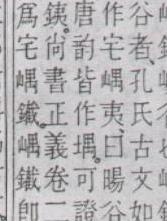 谷者孔氏古文如
作宅嵎夷曰暘谷
唐韵皆作堣可證
銕尚書正義卷二
爲宅嵎鐵嵎鐵即